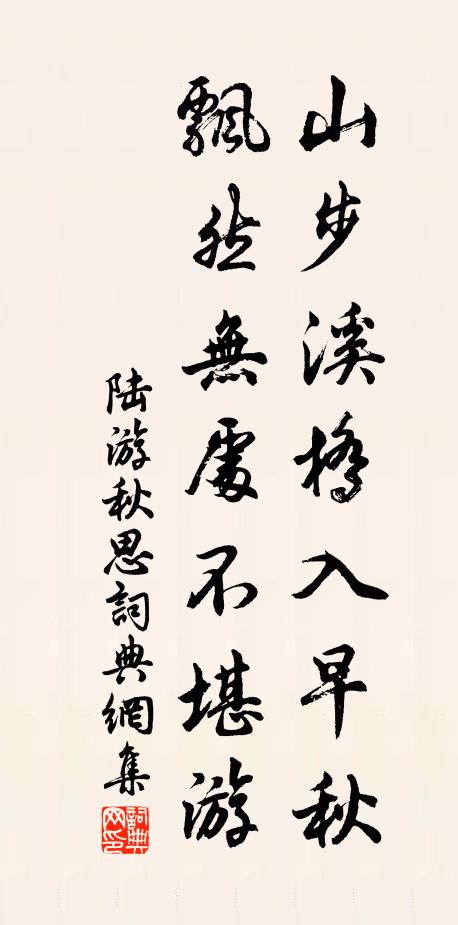 山步溪橋入早秋
飄然無處不堪游
陆游秋思詞典網集
詞典網印